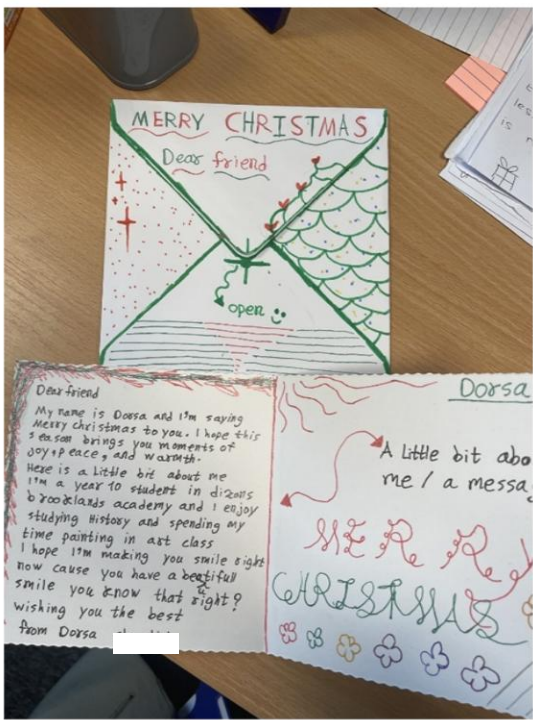 MERRY CHRISTMAS
Dear friend
open
Dear friend
My name is Dorsa and I'm saying
Merry christmas to you. I hope this
season brings you moments of
joy, peace, and warmth.
Here is a Little bit about me
I'm a year 10 student in dixons
brooklands academy and I enjoy
studying History and spending my
time painting in art class
I hope I'm making you smile right
now cause you have a beautifull
smile you know that right?
wishing you the best
from Dorsa
Dorsa
A Little bit abo
me / a messa
MERRY
CHRISTMAS